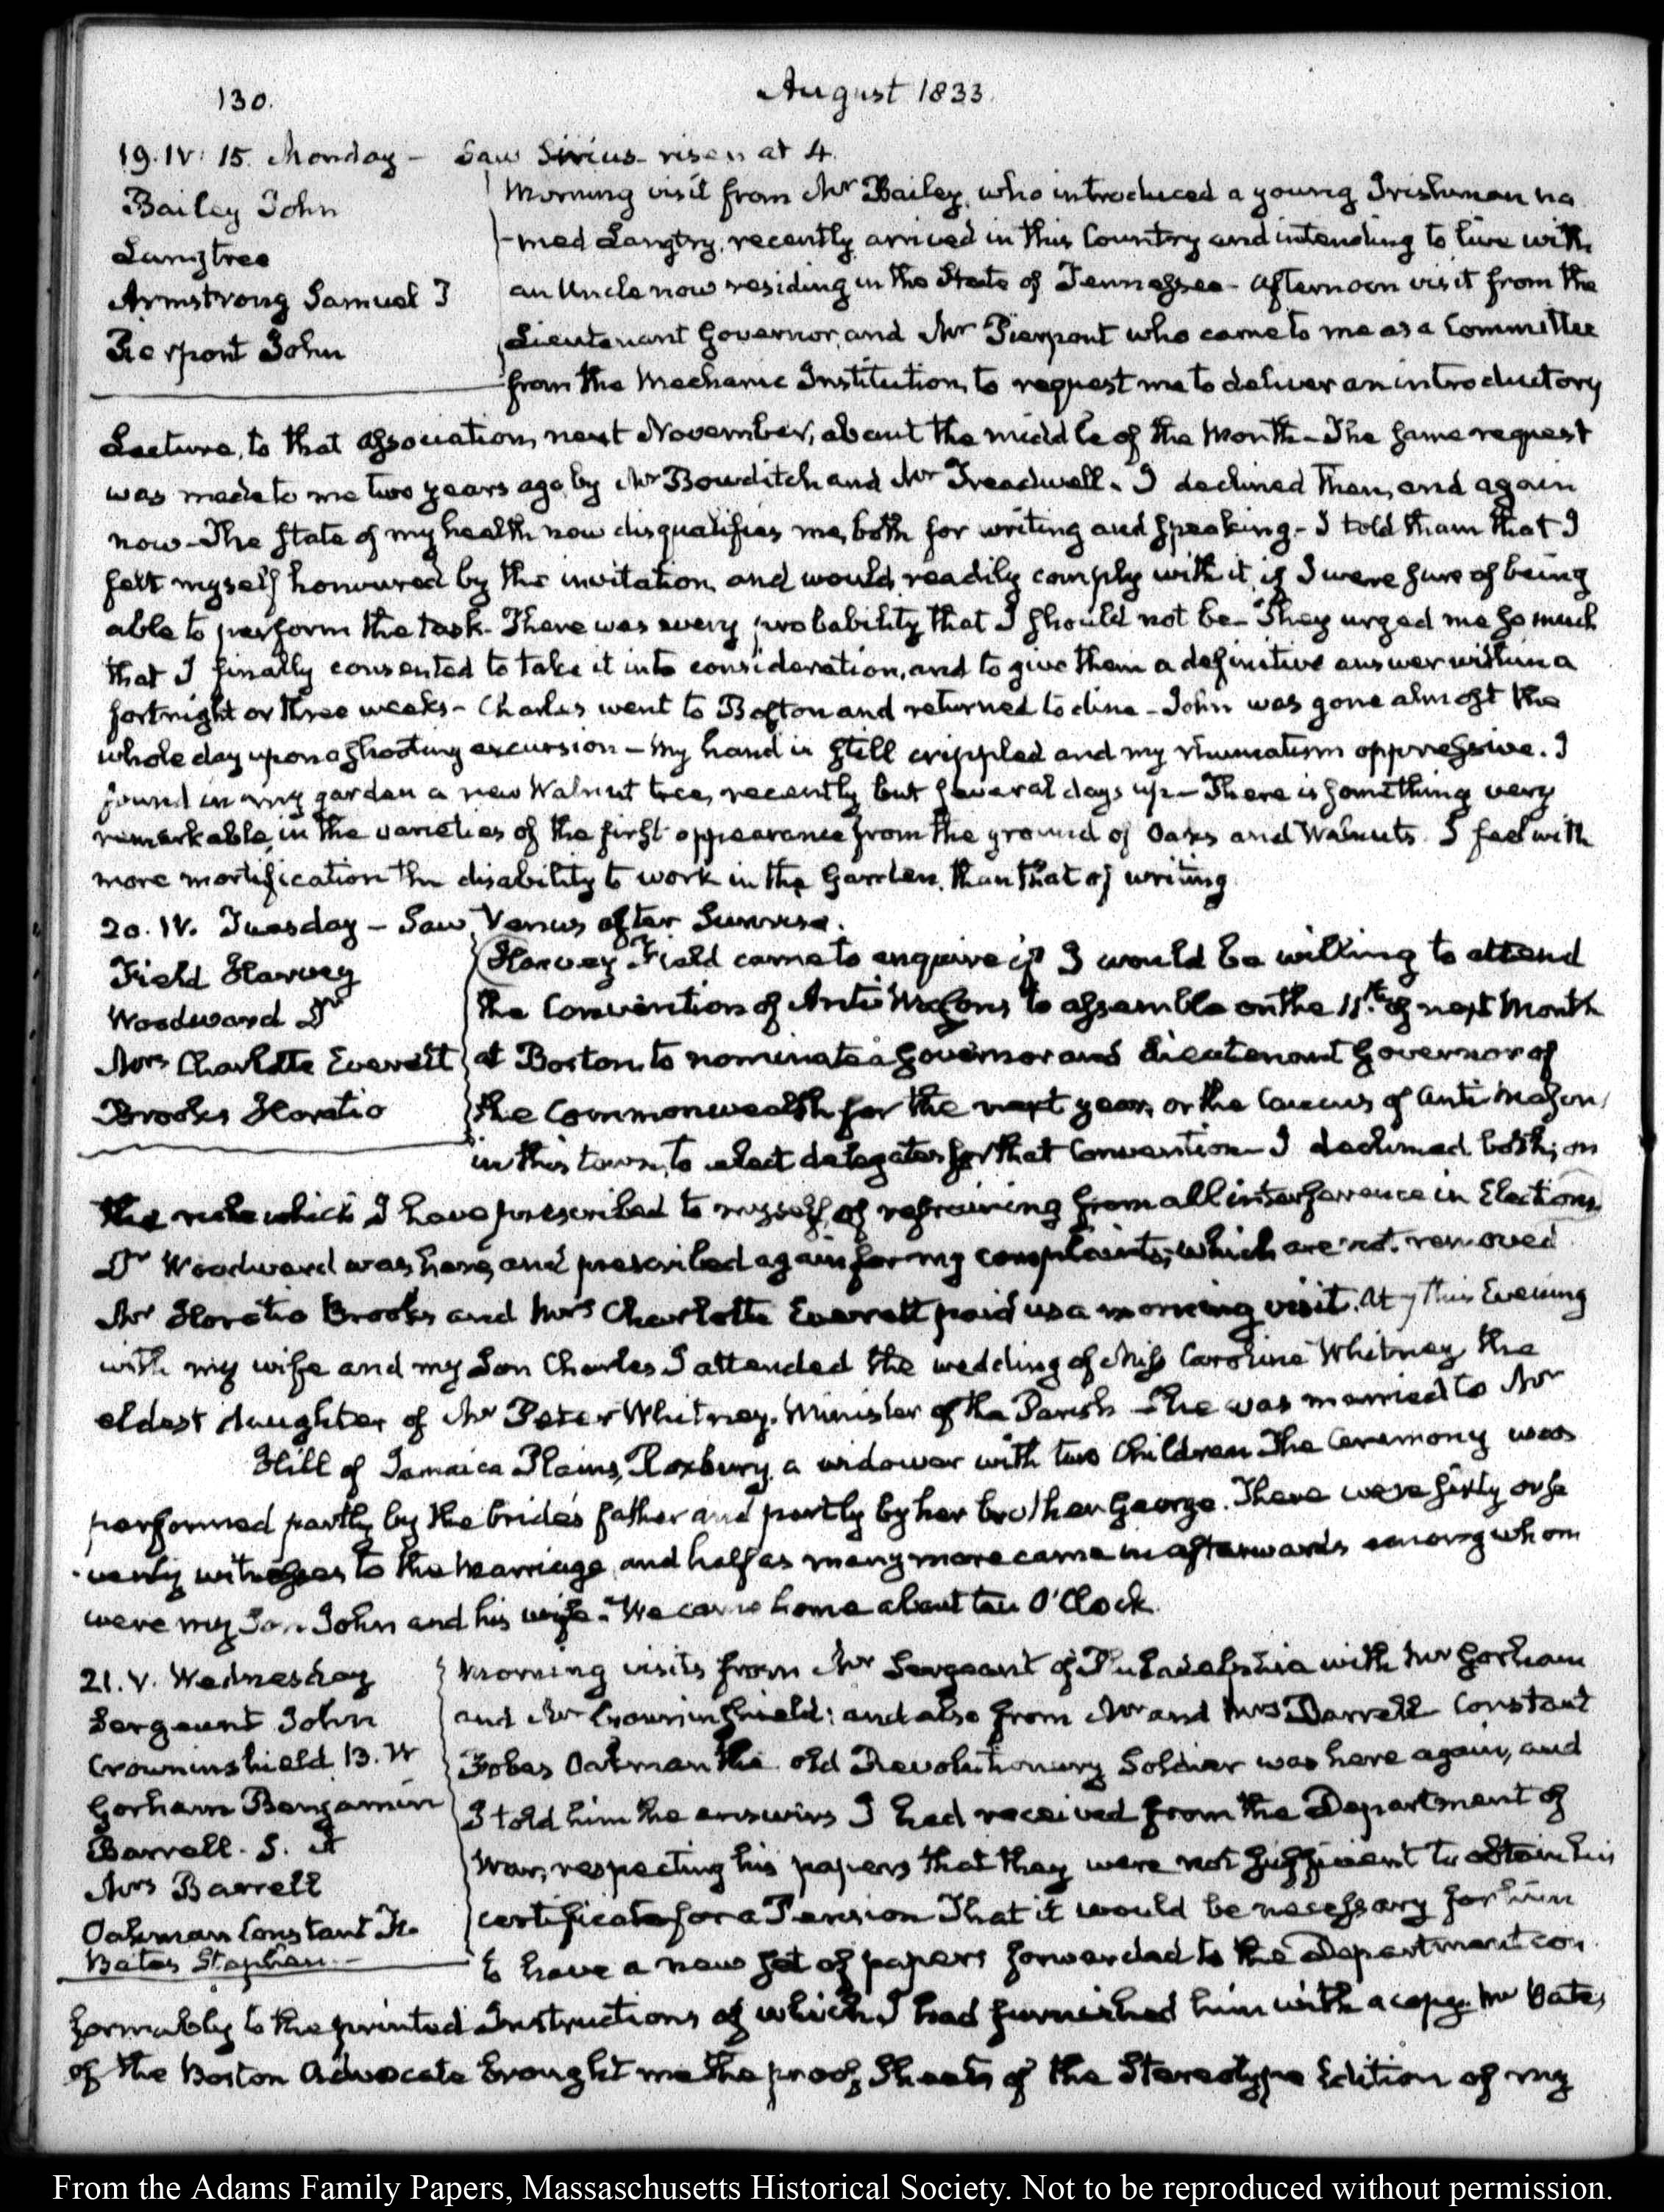 130.
August 1833.
19. IV: 15. Monday - Saw Sirius risen at 4.
Bailey John
Langtree
Armstrong Samuel T
Pierpont John
Morning visit from Mr Bailey, who introduced a young Irishman na
-med Langtry, recently arrived in this Country and intending to live with
an Uncle now residing in the State of Tennessee - Afternoon visit from the
Lieutenant Governor, and Mr Pierpont who came to me as a Committee
from the Mechanic Institution, to request me to deliver an introductory
Lecture, to that association, next November, about the middle of the Month - The same request
was made to me two years ago by Mr Bowditch and Mr Treadwell. I declined then, and again
now - The state of my health now disqualifies me, both for writing and speaking - I told them that I
felt myself honoured by the invitation, and would readily comply with it, if I were sure of being
able to perform the task - There was every probability that I should not be - They urged me so much
that I finally consented to take it into consideration, and to give them a definitive answer within a
fortnight or three weeks - Charles went to Boston and returned to dine - John was gone almost the
whole day upon a shooting excursion - My hand is still crippled and my rheumatism oppressive. I
found in my garden a new Walnut tree, recently but several days up - There is something very
remarkable, in the varieties of the first appearance from the ground of Oaks and Walnuts. I feel with
more mortification the disability to work in the Garden, than that of writing
20. IV. Tuesday - Saw Venus after Sunrise.
Field Harvey
Woodward Dr
Mrs Charlotte Everett
Brooks Horatio
Harvey Field came to enquire if I would be willing to attend
the Convention of Anti Masons to assemble on the 11th of next Month
at Boston, to nominate a Governor and Lieutenant Governor of
the Commonwealth for the next year, or the Caucus of Anti Masons
in this town, to elect delegates for that Convention - I declined both; on
the rule which I have prescribed to myself, of refraining from all interference in Elections
Dr Woodward was here, and prescribed again for my complaints, which are not removed
Mr Horatio Brooks and Mrs Charlotte Everett paid us a morning visit. At 7 This Evening
with my wife and my Son Charles I attended the wedding of Miss Caroline Whitney, the
eldest daughter of Mr Peter Whitney, Minister of the Parish - She was married to Mr
Hill of Jamaica Plains, Roxbury, a widower with two Children The Ceremony was
performed partly by the bride's father and partly by her brother George. There were sixty or se
-venty witnesses to the Marriage, and half as many more came in afterwards among whom
were my Son John and his wife. We came home about ten O'Clock.
21. V. Wednesday
Sergeant John
Crowninshield B. W
Gorham Benjamin
Barrell. S.
Mrs Barrell
Oakman Constant Fo.
Bates Stephen
Morning visits from Mr Sergeant of Philadelphia with Mr Gorham
and Mr Crowninshield; and also from Mr and Mrs Barrell Constant
Fobes Oakman the old Revolutionary Soldier was here again, and
I told him the answers I had received from the Department of
War, respecting his papers that they were not sufficient to obtain his
certificate for a Pension That it would be necessary for him
to have a new set of papers forwarded to the Department con
formably to the printed Instructions of which I had furnished him with a copy. Mr Bates
of the Boston Advocate brought me the proof Sheets of the Stereotype Edition of my
From the Adams Family Papers, Massachusetts Historical Society. Not to be reproduced without permission.